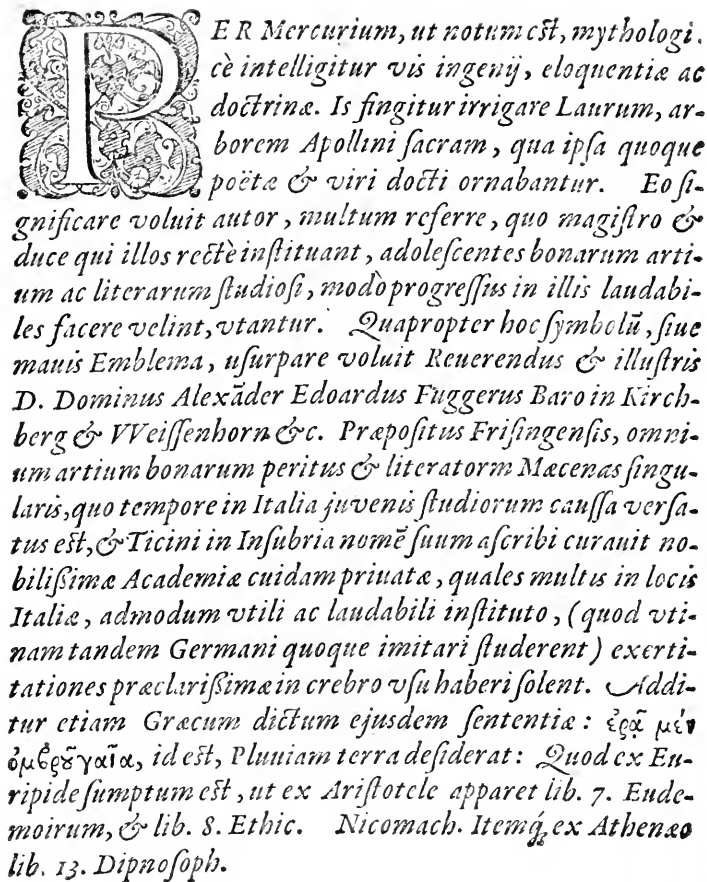 PER Mercurium, ut notum eſt, mythologi.
cè intelligitur vis ingenij, eloquentiæ ac
doctrinæ. Is fingitur irrigare Laurum, ar-
borem Apollini ſacram, qua ipſa quoque
poëtæ & viri docti ornabantur. Eo ſi-
gnificare voluit autor, multum referre, quo magiſtro &
duce qui illos rectè inſtituant, adoleſcentes bonarum arti-
um ac literarum ſtudioſi, modò progreſſus in illis laudabi-
les facere velint, vtantur. Quapropter hoc ſymbolũ, ſiue
mauis Emblema, uſurpare voluit Reuerendus & illuſtris
D. Dominus Alexãder Edoardus Fuggerus Baro in Kirch-
berg & VVeiſſenhorn &c. Præpoſitus Friſingenſis, omni-
um artium bonarum peritus & literatorm Mæcenas ſingu-
laris, quo tempore in Italia juvenis ſtudiorum cauſſa verſa-
tus eſt, & Ticini in Inſubria nomẽ ſuum aſcribi curauit no-
bilißimæ Academiæ cuidam priuatæ, quales multis in locis
Italiæ, admodum vtili ac laudabili inſtituto, (quod vti-
nam tandem Germani quoque imitari ſtuderent) exerti-
tationes præclarißimæ in crebro vſu haberi ſolent. Addi-
tur etiam Græcum dictum ejusdem ſententiæ: ἐρᾶ μὲν
ὀμβρȣ͂ γαῖα, id eſt, Pluuiam terra deſiderat: Quod ex Eu-
ripide ſumptum eſt, ut ex Ariſtotele apparet lib. 7. Eude-
moirum, & lib. 8. Ethic. Nicomach. Itemq́; ex Athenæo
lib. 13. Dipnoſoph.